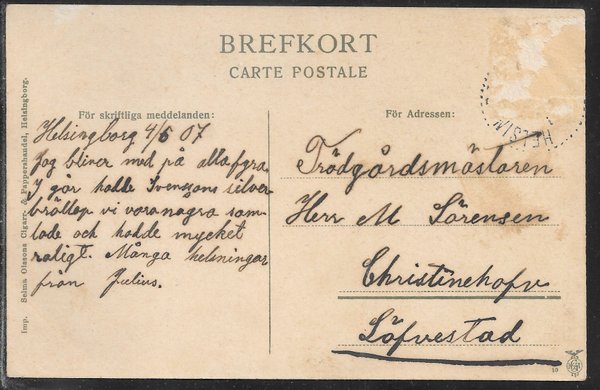 BREFKORT
CARTE POSTALE
För skriftliga meddelanden:
Helsingborg 4/6 07
Jag bliver med på alla fyra.
I går hadde Svenssons silver
bröllop vi vora några sam-
lade och hadde mycket
roligt. Många helsningar
från Julius.
För Adressen:
Trädgårdsmästaren
Herr M Sörensen
Christinehofv
Löfvestad
Imp. Selma Olssons Cigarr- & Pappershandel, Helsingborg.
HELSIN
10